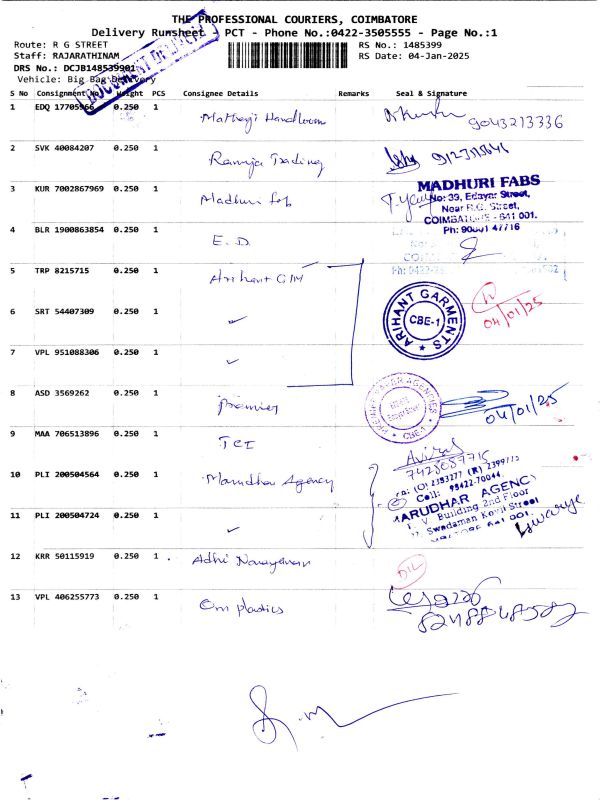 THE PROFESSIONAL COURIERS, COIMBATORE
Delivery Runsheet - PCT - Phone No.:0422-3505555 - Page No.:1
Route: R G STREET
Staff: RAJARATHINAM
DRS No.: DCJB148539901
Vehicle: Big Bag Delivery
RS No.: 1485399
RS Date: 04-Jan-2025
DOCUMENT DELIVERY
S No Consignment No Weight PCS Consignee Details Remarks Seal & Signature
1 EDQ 17705966 0.250 1 Handloom 9043213336
2 SVK 40084207 0.250 1 Ramja Trading
3 KUR 7002867969 0.250 1 Madhuri Fab
MADHURI FABS
No: 39, Edayar Street,
Near R.G. Street,
COIMBATORE - 641 001.
Ph: 90001 47716
4 BLR 1900863854 0.250 1 E. D.
5 TRP 8215715 0.250 1 Arihant GIM
ARIHANT GARMENTS
CBE-1
04/01/25
6 SRT 54407309 0.250 1
7 VPL 951088306 0.250 1
8 ASD 3569262 0.250 1 Premier
CBE-1
04/01/25
9 MAA 706513896 0.250 1 TCI
10 PLI 200504564 0.250 1 Marudhar Agency
(O) 2393277 (R) 2399775
Cell: 98422-70044
MARUDHAR AGENCY
Building 2nd Floor
Swadaman Kovil Street
11 PLI 200504724 0.250 1
12 KRR 50115919 0.250 1 Adhi Narayanan
13 VPL 406255773 0.250 1 Om plastics